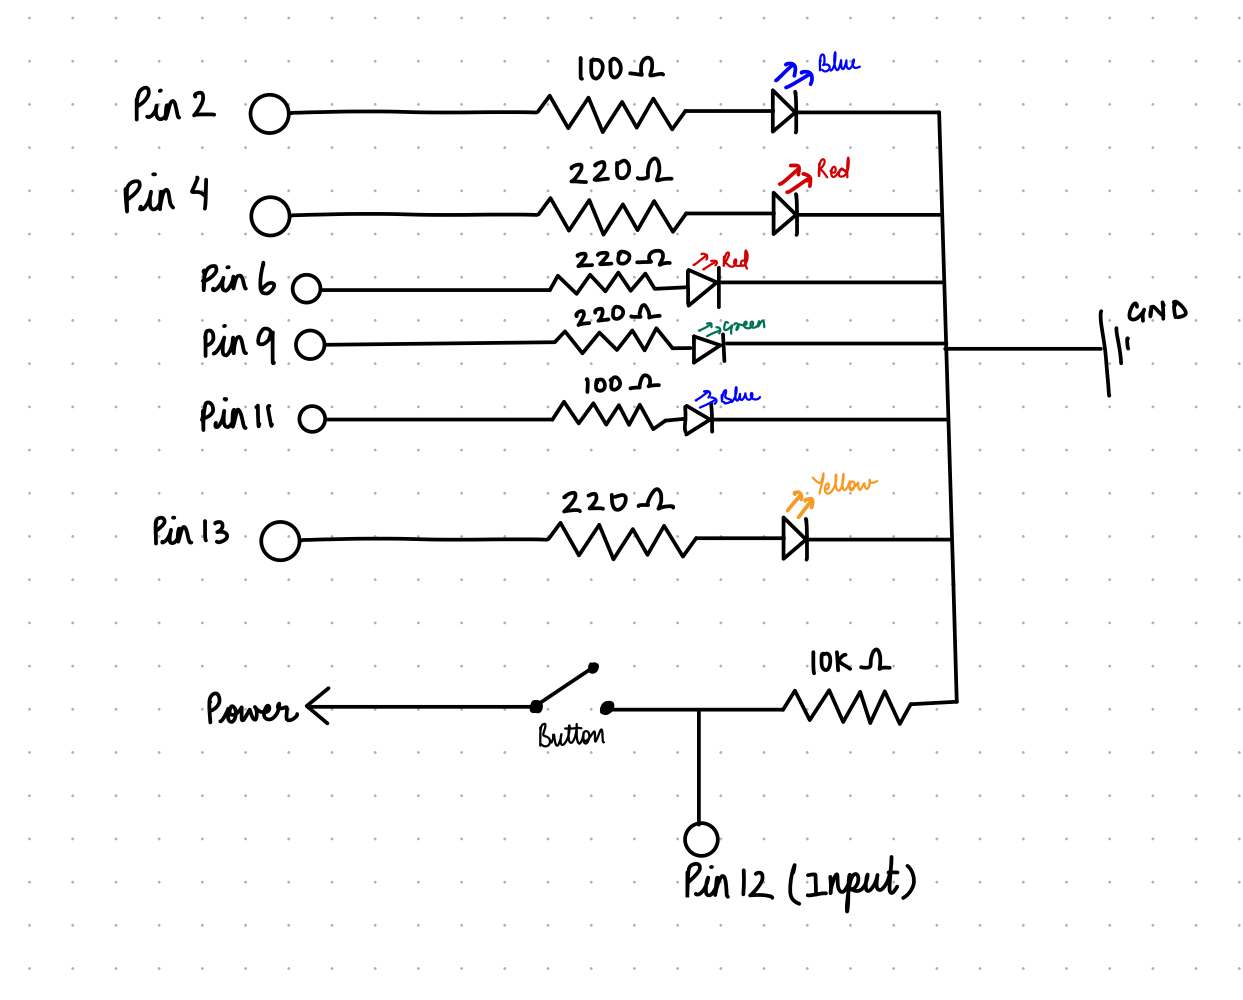 100Ω
Blue
Pin 2
220Ω
Red
Pin 4
220Ω
Red
Pin 6
220Ω
Green
Pin 9
GND
100Ω
Blue
Pin 11
220Ω
Yellow
Pin 13
10K Ω
Power
Button
Pin 12 (Input)